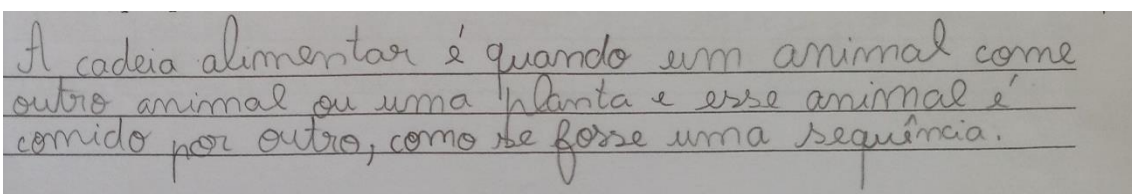 A cadeia alimentar é quando um animal come
outro animal ou uma planta e esse animal é
comido por outro, como se fosse uma sequência.